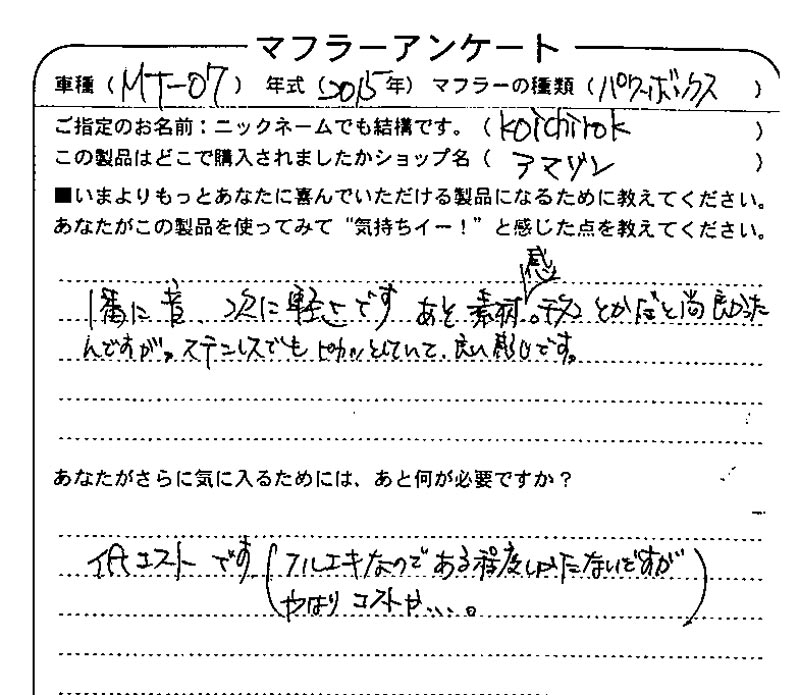 マフラーアンケート
車種（MT-07） 年式（2015年）マフラーの種類（パワーボックス）
ご指定のお名前：ニックネームでも結構です。（koichirok）
この製品はどこで購入されましたかショップ名（アマゾン）
■いまよりもっとあなたに喜んでいただける製品になるために教えてください。
あなたがこの製品を使ってみて“気持ちイー！”と感じた点を教えてください。
1番に音、次に軽さです あと素材感。チタンとかだと尚良かった
んですが。ステンレスでもピカッとしていて、良い感じです。
あなたがさらに気に入るためには、あと何が必要ですか？
低コストです（フルエキなのである程度しかたないですが
やはりコストや...。）